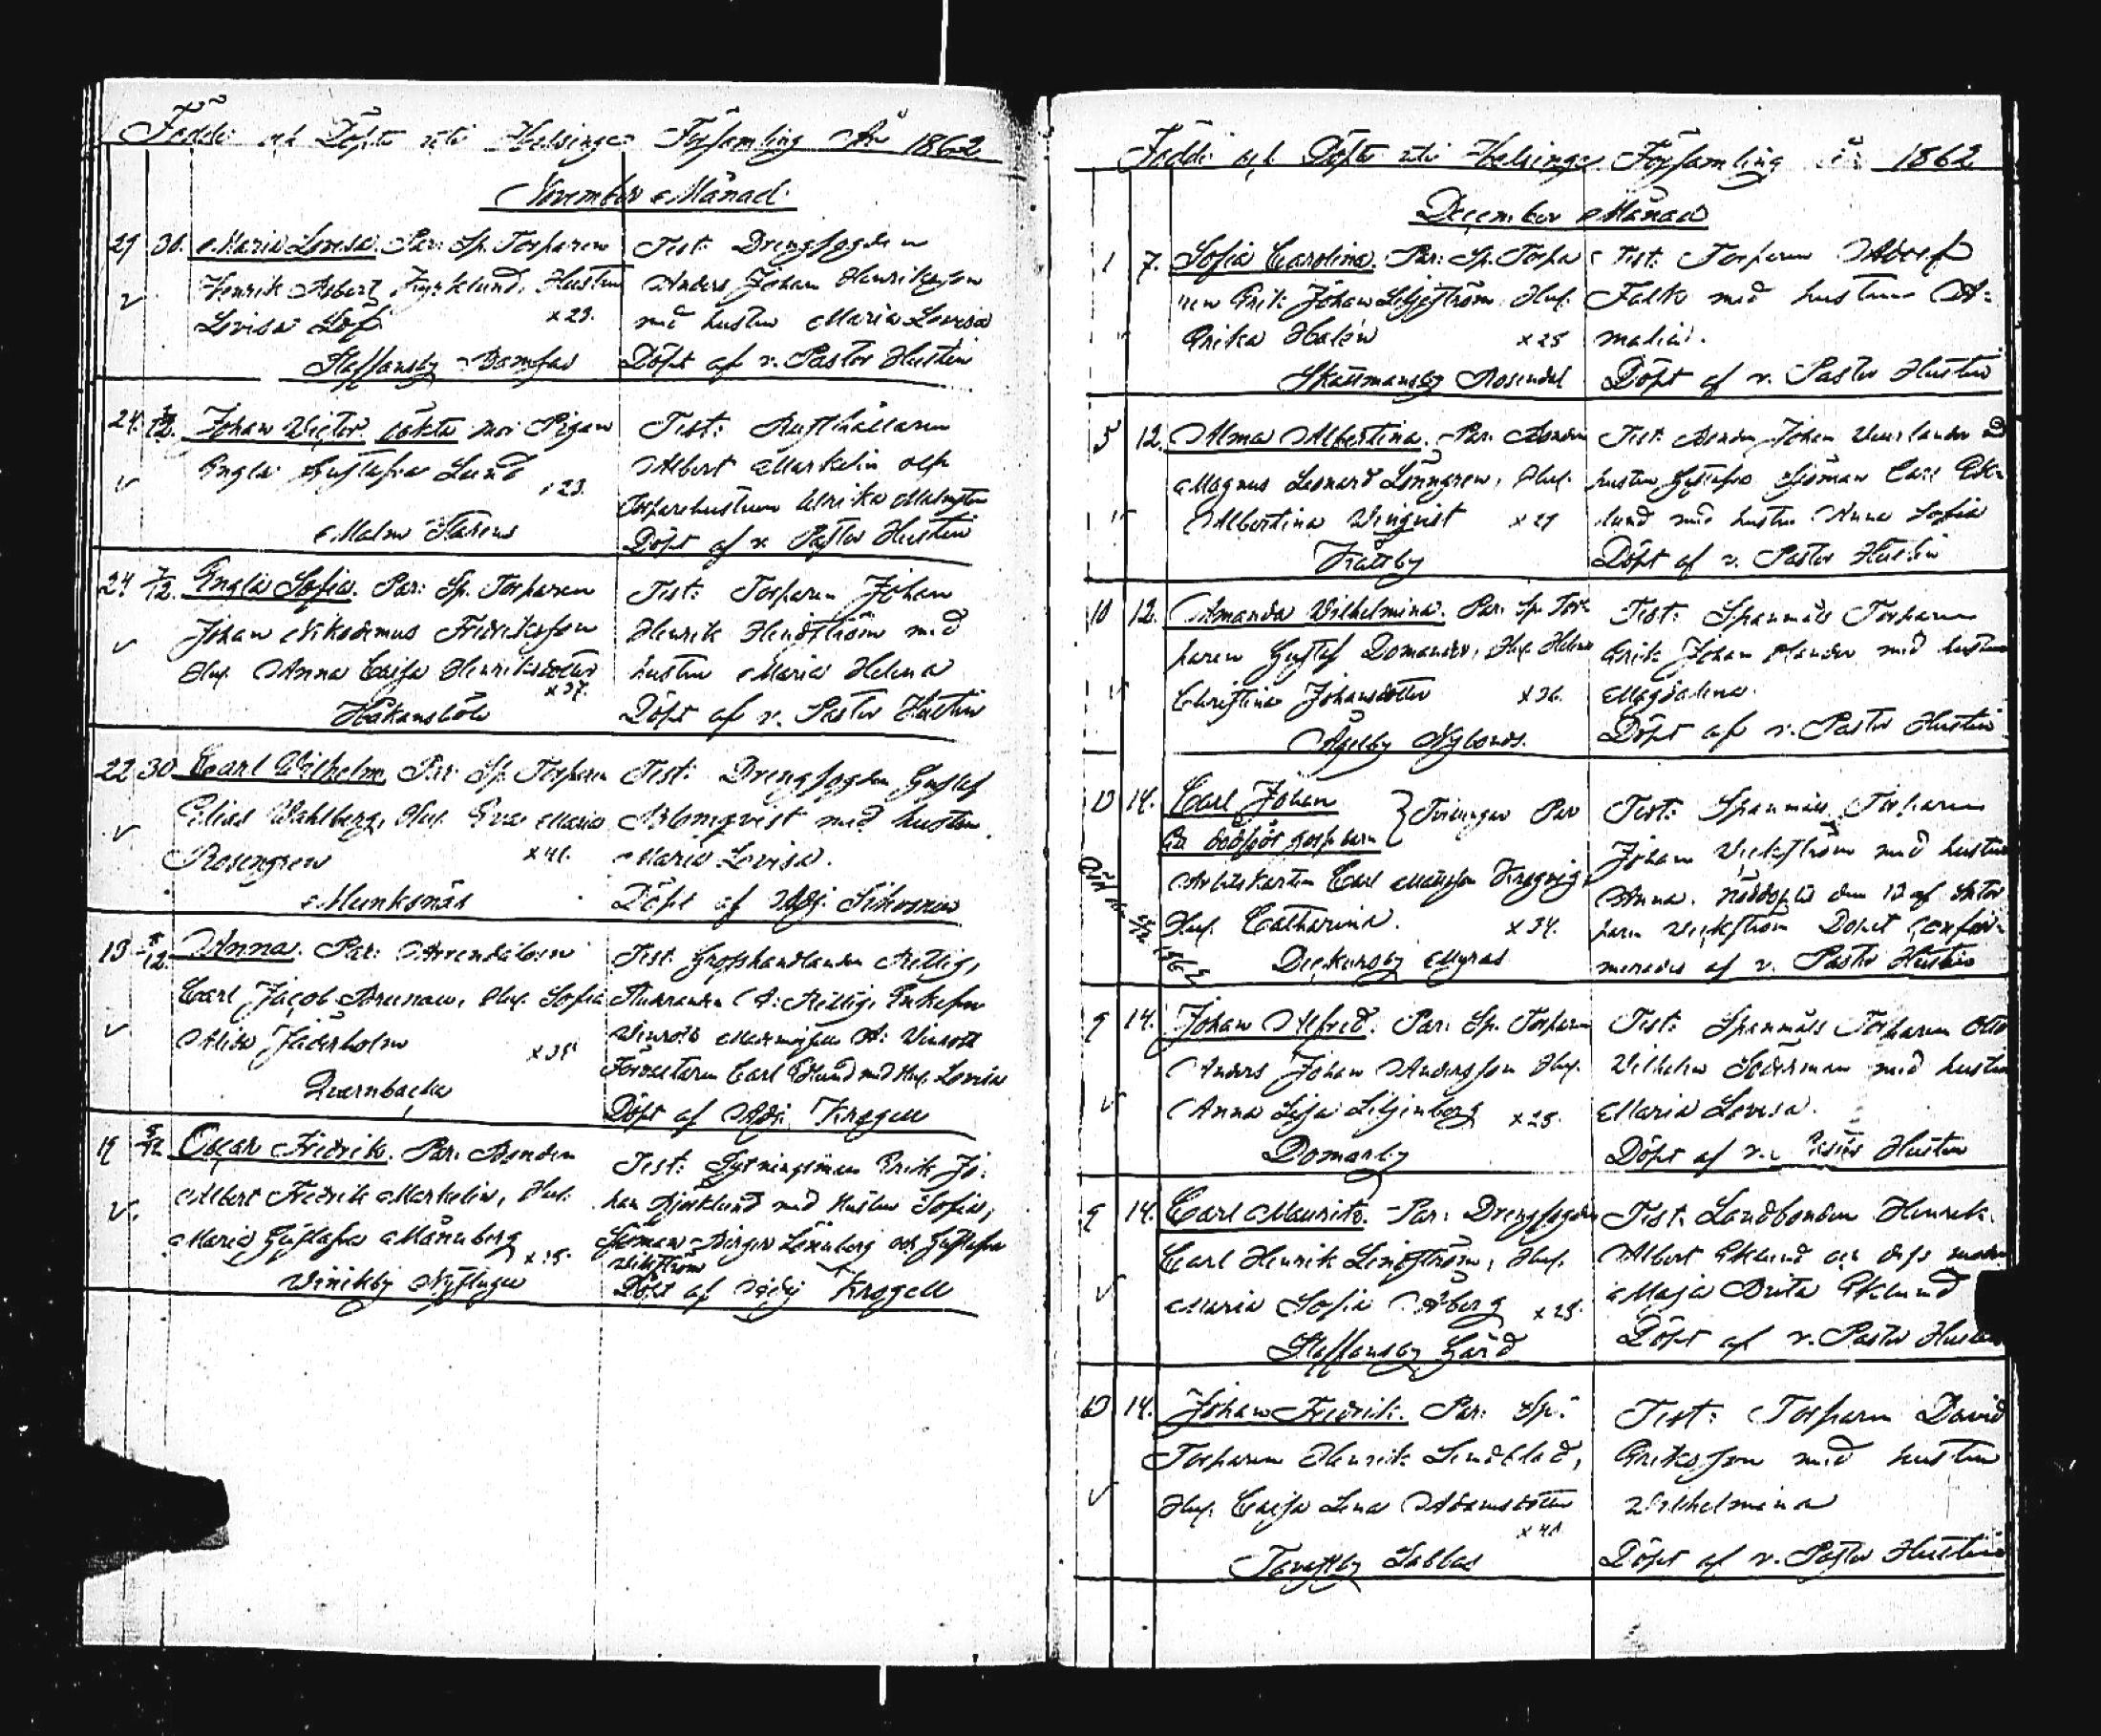 Födde och Döpte uti Helsinge Församling År 1862
November Månad
29 30. Maria Lovisa. Par: Sp. Torparen
Henrik Albert Kyrklund, Hustru
Lovisa Löf x 23.
Staffansby Bamfas
Test: Drengfogden
Anders Johan Henriksson
med hustru Maria Lovisa
Döpt af v. Pastor Hustin
24. 7/12. Johan Victor. oäkta mor Pigan
Engla Gustafva Lund x 23.
Malm Starens
Test: Rusthållaren
Albert Markelin och
Torparehustrun Ulrika Malmsten
Döpt af v. Pastor Hustin
24 7/12. Engla Sofia. Par: Sp. Torparen
Johan Nikodemus Fredriksson
Hu. Anna Cajsa Henriksdotter
x 37.
Håkansböle
Test: Torparen Johan
Henrik Hindström med
hustru Maria Helena
Döpt af v. Pastor Hustin
22 30 Carl Wilhelm. Par: Sp. Torparen
Elias Wahlberg, Hu. Eva Maria
Rosengren x 41.
Munksnäs
Test: Drengfogden Gustaf
Blomqvist med hustru
Maria Lovisa.
Döpt af Adj.
13 /12. Anna. Par: Arrendatorn
Carl Jacob Brunow, Hu. Sofia
Alina Jäderholm x 35
Qvarnbacka
Test. Grosshandlanden Rettig,
Studeranden A: Rettig, Enkefru
Winroth Mamsellen A: Winroth
Förvaltaren Carl Eklund med Hu. Lovisa
Döpt af Adj. Krogell
19 /12 Oscar Fredrik. Par. Bonden
Albert Fredrik Markelin, Hu.
Maria Gustafva Månnberg x 35.
Winikby Nystuga
Test: Sytningsman Erik Jo-
han Björklund med Hustru Sofia,
Sjöman Birger Lönnberg och Gustafva
Wikström
Döpt af Adj Krogell
Födde och Döpte uti Helsinge Församling år 1862
December Månad
1 7. Sofia Carolina. Par: Sp. Torpa
ren Erik Johan Liljeström, Hu.
Erika Halén x 25
Skattmansby Rosendal
Test: Torparen Adolf
Falk med hustru A-
malia.
Döpt af v. Pastor Hustin
5 12. Alma Albertina. Par. Bonden
Magnus Leonard Lönngren, Hu.
Albertina Winqvist x 29
Fastby
Test: Bonden Johan Westerlund
hustru Gustafva Sjöman Carl Ek-
lund med hustru Anna Sofia
Döpt af v. Pastor Hustin
10 12. Amanda Wilhelmina. Par. Sp. Tor-
paren Gustaf Domander, Hu. Helena
Christina Johansdotter x 36.
Åggelby Nybonds.
Test: Spanmåls Torparen
Erik Johan Olander med hustru
Magdalena.
Döpt af v. Pastor Hustin
13 14. Carl Johan } Tvilingar Par
Ett dödfödt gossebarn
Arbetskarlen Carl Mattsson Krogvig
Hu. Catharina. x 34.
Dickursby Myras
Test: Spanmåls Torparen
Johan Wickström med hustru
Anna. Nöddöpt den 13 af
paren Wickström Dopet confir-
merades af v. Pastor Hustin
9 14. Johan Alfred. Par. Sp. Torparen
Anders Johan Andersson Hu.
Anna Lisa Liljenberg x 25.
Domarby
Test: Spanmåls Torparen Otto
Wilhelm Söderman med hustru
Maria Lovisa.
Döpt af v. Pastor Hustin
9 14. Carl Maurits. Par: Drengfogden
Carl Henrik Lindström, Hu.
Maria Sofia Åberg x 25
Staffansby Gård
Test: Landbonden Henrik
Albert Eklund och dess moder
Maja Brita Eklund
Döpt af v. Pastor Hustin
13 14. Johan Fredrik. Par: Sp.
Torparen Henrik Lindblad,
Hu. Cajsa Lena Adamsdotter
x 41.
Tavastby Sabbas
Test: Torparen David
Eriksson med hustru
Wilhelmina
Döpt af v. Pastor Hustin